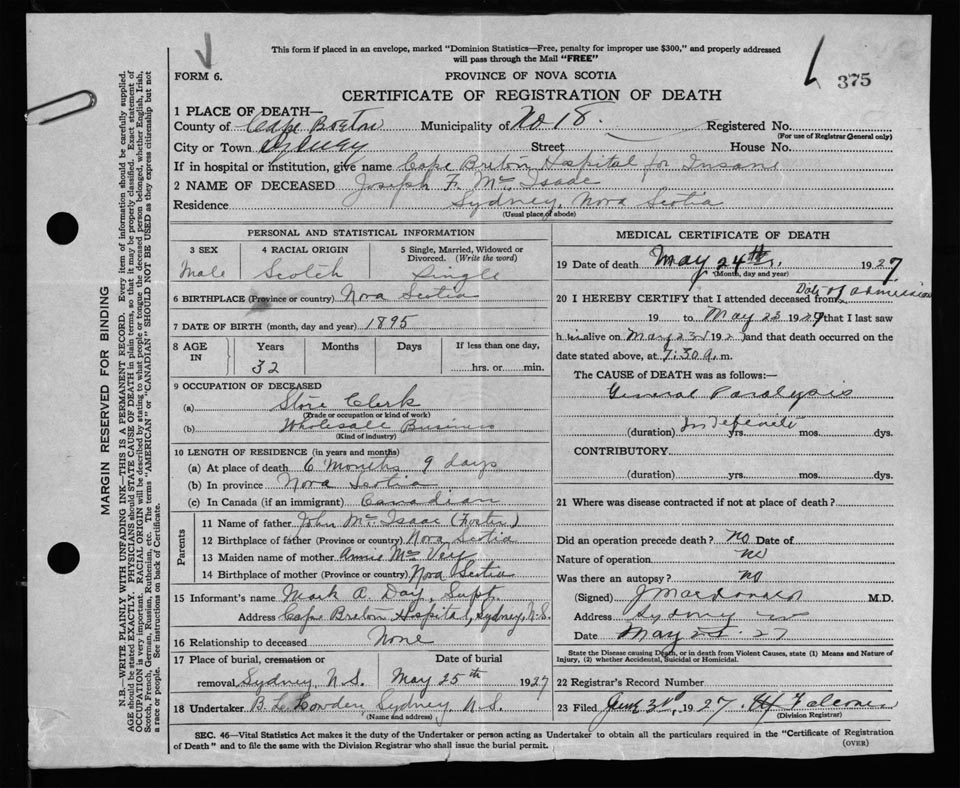 This form if placed in an envelope, marked "Dominion Statistics—Free, penalty for improper use $300," and properly addressed
will pass through the Mail "FREE"
FORM 6.
PROVINCE OF NOVA SCOTIA
375
CERTIFICATE OF REGISTRATION OF DEATH
1 PLACE OF DEATH—
County of Cape Breton Municipality of No 18. Registered No.
(For use of Registrar General only)
City or Town Sydney Street House No.
If in hospital or institution, give name Cape Breton Hospital for Insane
2 NAME OF DECEASED Joseph F. Mc Isaac
Residence Sydney, Nova Scotia
(Usual place of abode)
PERSONAL AND STATISTICAL INFORMATION
3 SEX 4 RACIAL ORIGIN 5 Single, Married, Widowed or
Divorced. (Write the word)
Male Scotch Single
6 BIRTHPLACE (Province or country) Nova Scotia
7 DATE OF BIRTH (month, day and year) 1895
8 AGE IN Years Months Days If less than one day,
32 hrs. or min.
9 OCCUPATION OF DECEASED
(a) Store Clerk
(Trade or occupation or kind of work)
(b) Wholesale Business
(Kind of industry)
10 LENGTH OF RESIDENCE (in years and months)
(a) At place of death 6 Months 9 days
(b) In province Nova Scotia
(c) In Canada (if an immigrant) Canadian
Parents
11 Name of father John Mc Isaac (Foster)
12 Birthplace of father (Province or country) Nova Scotia
13 Maiden name of mother Annie Mc
14 Birthplace of mother (Province or country) Nova Scotia
15 Informant's name Mark A. Day, Supt.
Address Cape Breton Hospital, Sydney, N.S.
16 Relationship to deceased None
17 Place of burial, cremation or Date of burial
removal Sydney N.S. May 25th 1927
18 Undertaker B. L. Sydney N.S.
(Name and address)
MEDICAL CERTIFICATE OF DEATH
19 Date of death May 24th 1927
(Month, day and year)
20 I HEREBY CERTIFY that I attended deceased from Date of admission
19 to May 23 1927 that I last saw
h im alive on May 23 192 and that death occurred on the
date stated above, at 7:30 a. m.
The CAUSE of DEATH was as follows:—
General Paralysis
(duration) Indefinite yrs. mos. dys.
CONTRIBUTORY
(duration) yrs. mos. dys.
21 Where was disease contracted if not at place of death?
Did an operation precede death? no Date of
Nature of operation no
Was there an autopsy? no
(Signed) J Macdonald M.D.
Address Sydney
Date May 27
State the Disease causing Death, or in death from Violent Causes, state (1) Means and Nature of
Injury, (2) whether Accidental, Suicidal or Homicidal.
22 Registrar's Record Number
23 Filed June 3rd, 1927
(Division Registrar)
SEC. 46—Vital Statistics Act makes it the duty of the Undertaker or person acting as Undertaker to obtain all the particulars required in the "Certificate of Registration
of Death" and to file the same with the Division Registrar who shall issue the burial permit.
(OVER)
MARGIN RESERVED FOR BINDING
N.B.—WRITE PLAINLY WITH UNFADING INK—THIS IS A PERMANENT RECORD. Every item of information should be carefully supplied.
AGE should be stated EXACTLY. PHYSICIANS should STATE CAUSE OF DEATH in plain terms, so that it may be properly classified. Exact statement of
OCCUPATION is very important. RACIAL ORIGIN will be described by stating to what people or tongue the deceased person belonged, whether English, Irish,
Scotch, French, German, Russian, Ruthenian, etc. The terms "AMERICAN" or "CANADIAN" SHOULD NOT BE USED as they express citizenship but not
a race or people. See instructions on back of Certificate.